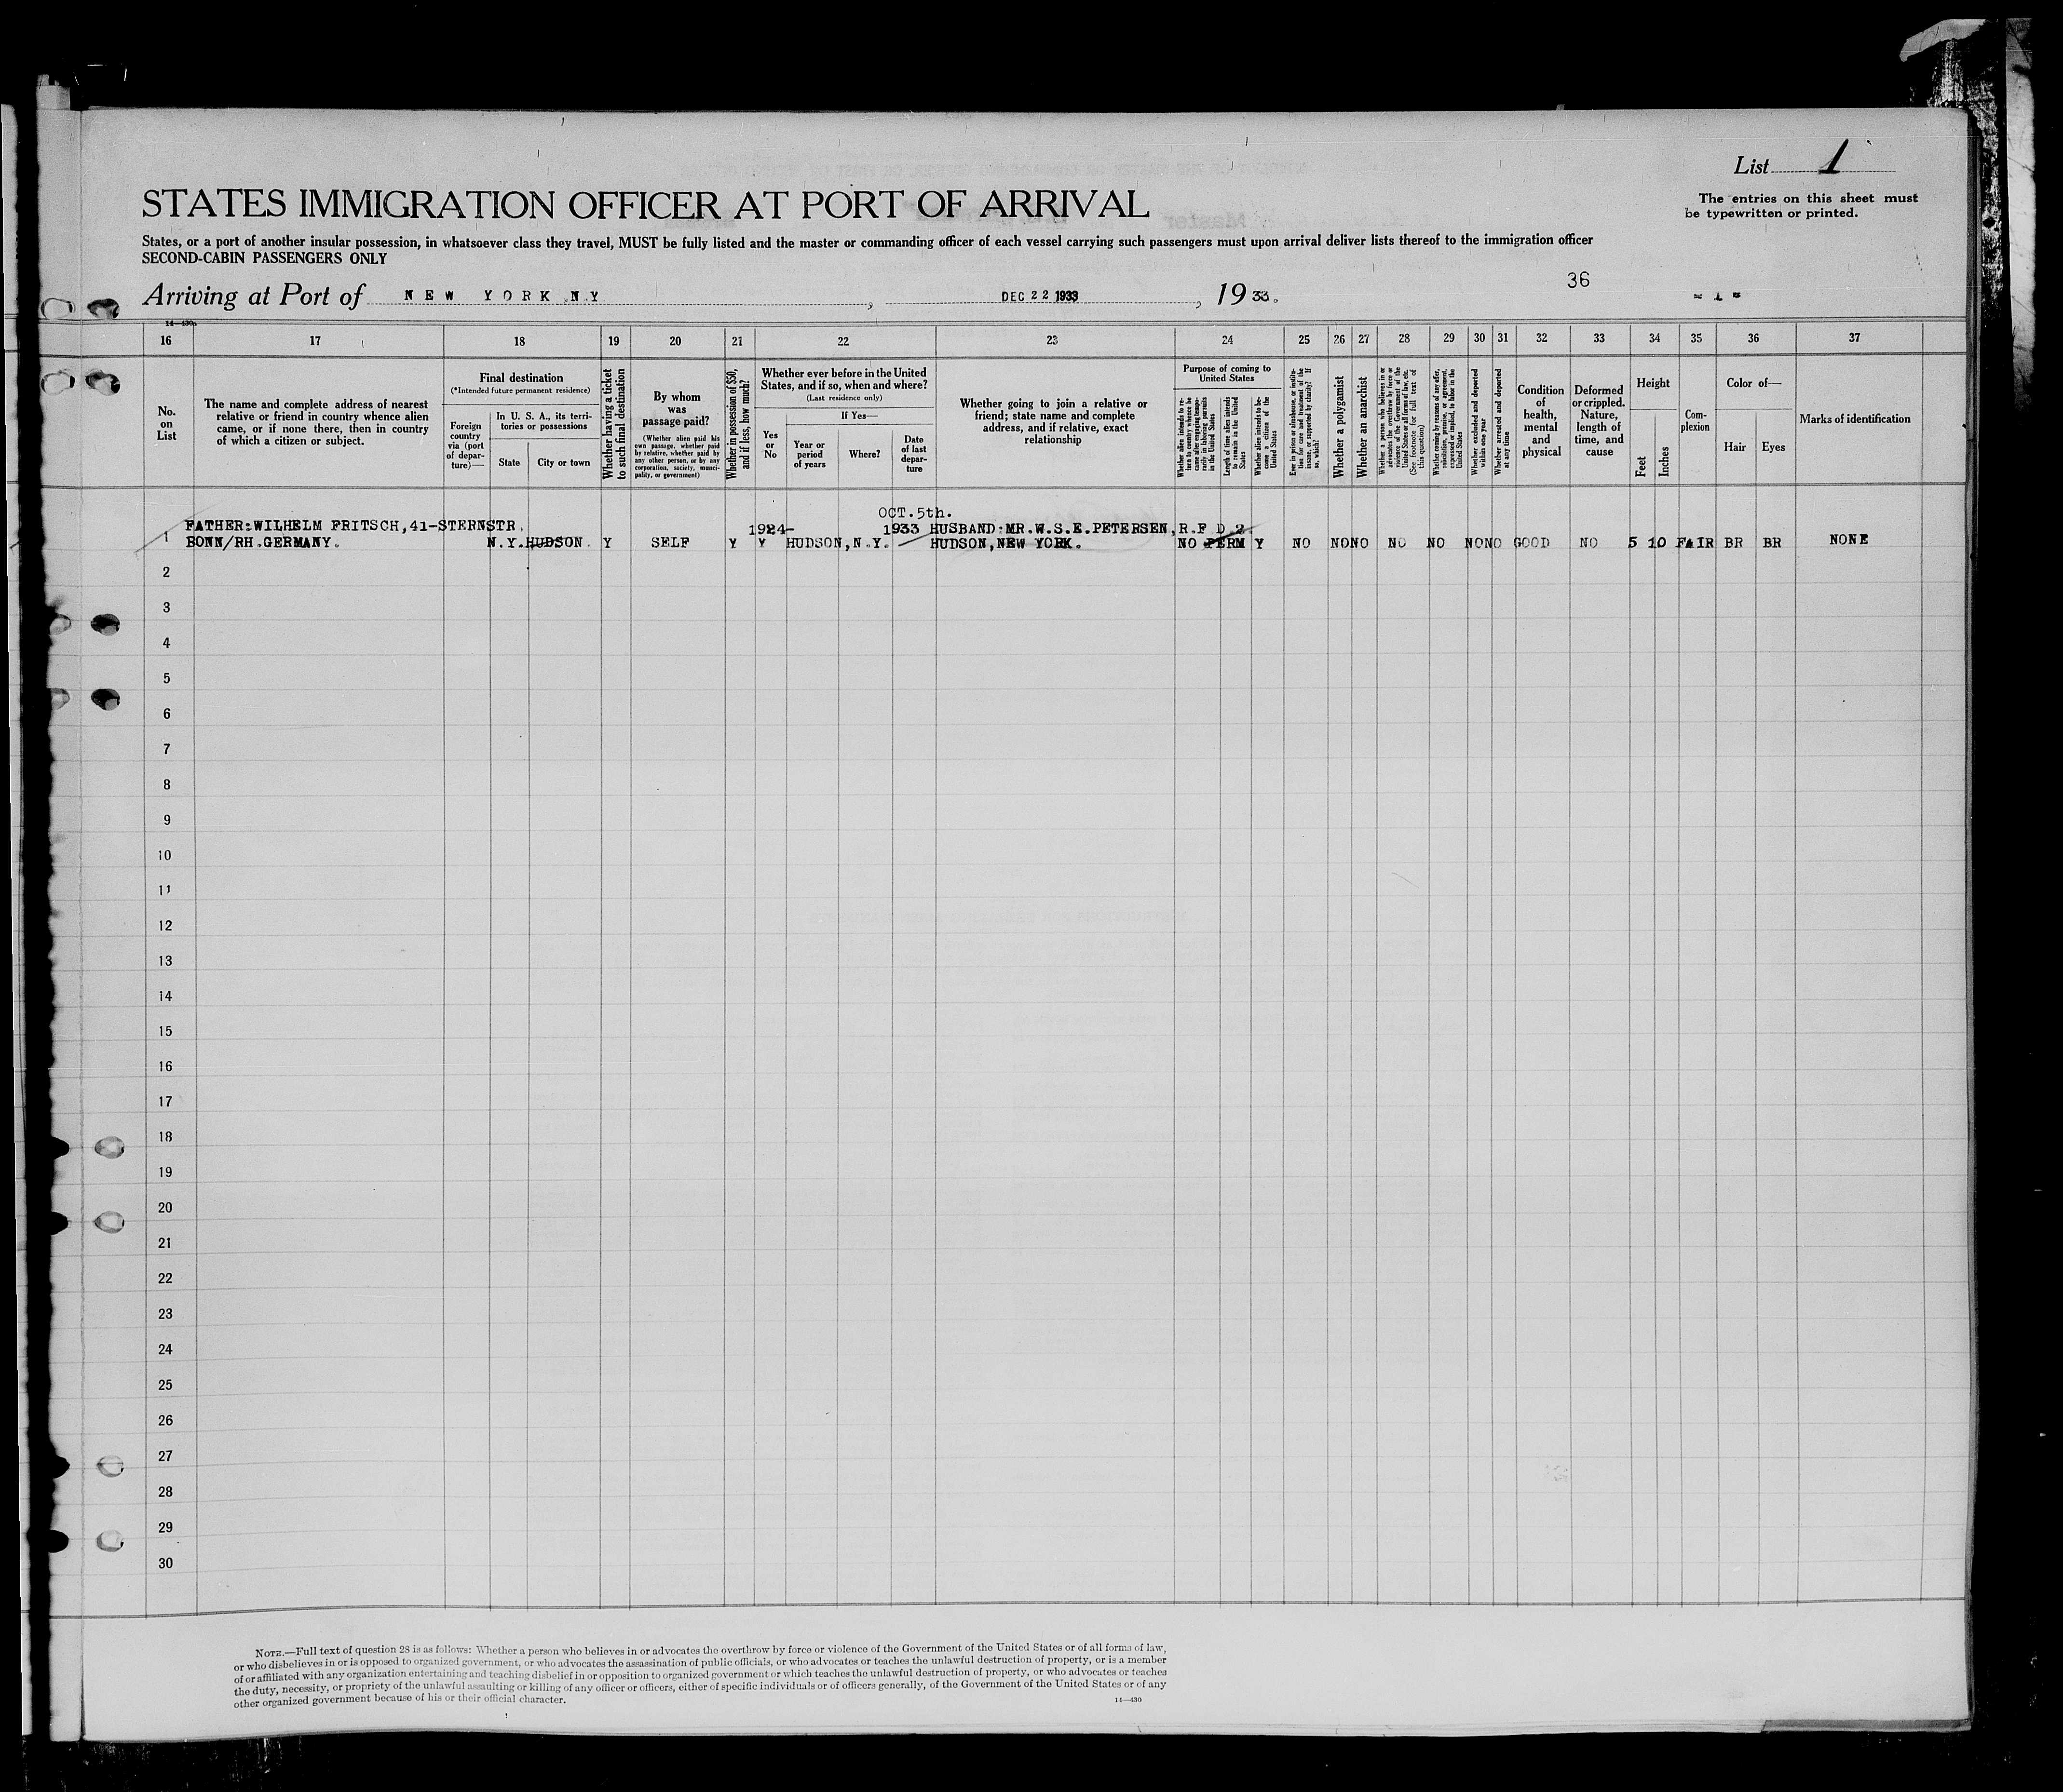 List 1
The entries on this sheet must
be typewritten or printed.
STATES IMMIGRATION OFFICER AT PORT OF ARRIVAL
States, or a port of another insular possession, in whatsoever class they travel, MUST be fully listed and the master or commanding officer of each vessel carrying such passengers must upon arrival deliver lists thereof to the immigration officer
SECOND-CABIN PASSENGERS ONLY
36
Arriving at Port of NEW YORK N.Y , DEC 22 1933 , 19 33.
- 1 -
14—430a
16 17 18 19 20 21 22 23 24 25 26 27 28 29 30 31 32 33 34 35 36 37
No.
on
List
The name and complete address of nearest
relative or friend in country whence alien
came, or if none there, then in country
of which a citizen or subject.
Final destination
(*Intended future permanent residence)
Foreign
country
via (port
of depar-
ture)—
In U. S. A., its terri-
tories or possessions
State
City or town
Whether having a ticket
to such final destination
By whom
was
passage paid?
(Whether alien paid his
own passage, whether paid
by relative, whether paid by
any other person, or by any
corporation, society, munici-
pality, or government)
Whether in possession of $50,
and if less, how much?
Whether ever before in the United
States, and if so, when and where?
(Last residence only)
Yes
or
No
If Yes—
Year or
period
of years
Where?
Date
of last
depar-
ture
Whether going to join a relative or
friend; state name and complete
address, and if relative, exact
relationship
Purpose of coming to
United States
Whether alien intends to re-
turn to country whence he
came after engaging tempo-
rarily in laboring pursuits
in the United States
Length of time alien intends
to remain in the United
States
Whether alien intends to be-
come a citizen of the
United States
Ever in prison or almshouse, or institu-
tion for care and treatment of the
insane, or supported by charity? If
so, which?
Whether a polygamist
Whether an anarchist
Whether a person who believes in or
advocates the overthrow by force or
violence of the Government of the
United States or all forms of law, etc.
(See footnote for full text of
this question)
Whether coming by reasons of any offer,
solicitation, promise, or agreement,
expressed or implied, to labor in the
United States
Whether excluded and deported
within one year
Whether arrested and deported
at any time
Condition
of
health,
mental
and
physical
Deformed
or crippled.
Nature,
length of
time, and
cause
Height
Feet
Inches
Com-
plexion
Color of—
Hair
Eyes
Marks of identification
OCT.5th.
FATHER:WILHELM FRITSCH,41-STERNSTR. 1924- 1933 HUSBAND:MR.W.S.E.PETERSEN,R.F D 2
1 BONN/RH.GERMANY. N.Y.HUDSON. Y SELF Y Y HUDSON,N.Y. HUDSON,NEW YORK. NO PERM Y NO NONO NO NO NONO GOOD NO 5 10 FAIR BR BR NONE
2
3
4
5
6
7
8
9
10
11
12
13
14
15
16
17
18
19
20
21
22
23
24
25
26
27
28
29
30
NOTE.—Full text of question 28 is as follows: Whether a person who believes in or advocates the overthrow by force or violence of the Government of the United States or of all forms of law,
or who disbelieves in or is opposed to organized government, or who advocates the assassination of public officials, or who advocates or teaches the unlawful destruction of property, or is a member
of or affiliated with any organization entertaining and teaching disbelief in or opposition to organized government or which teaches the unlawful destruction of property, or who advocates or teaches
the duty, necessity, or propriety of the unlawful assaulting or killing of any officer or officers, either of specific individuals or of officers generally, of the Government of the United States or of any
other organized government because of his or their official character.
14—430